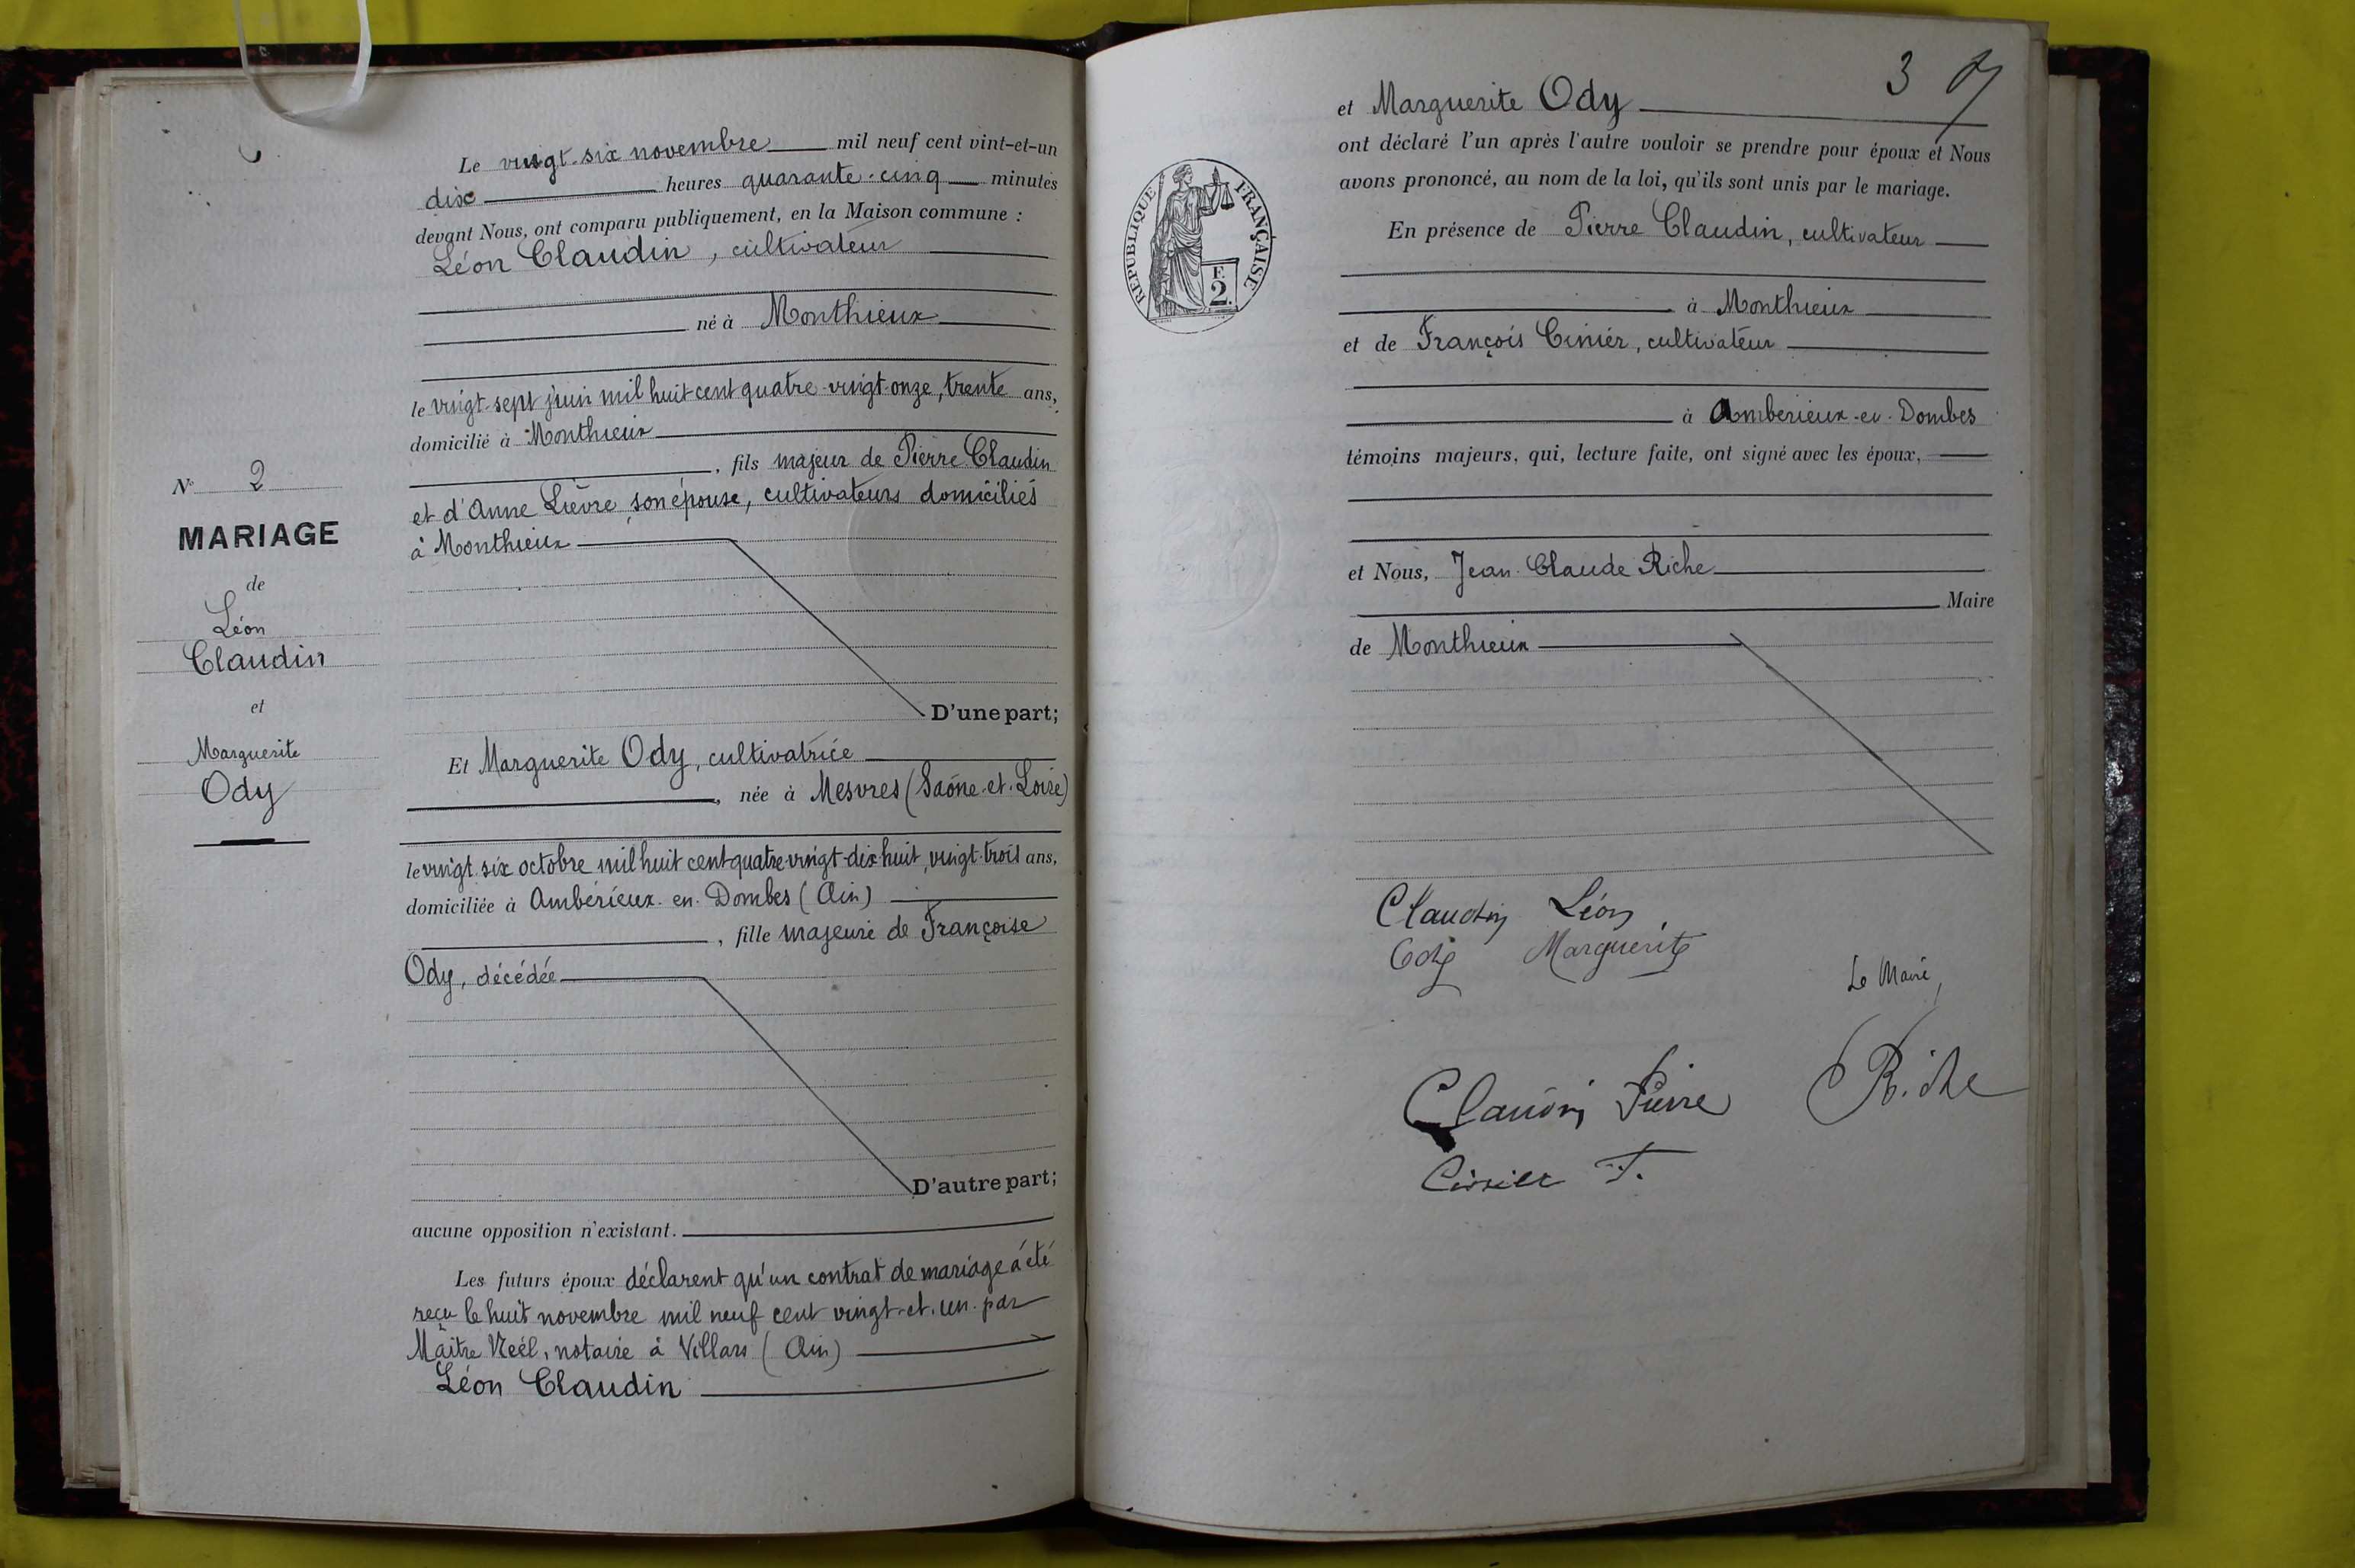 Le vingt-six novembre mil neuf cent vint-et-un
dix heures quarante-cinq minutes
devant Nous, ont comparu publiquement, en la Maison commune :
Léon Claudin, cultivateur
né à Monthieux
le vingt-sept juin mil huit cent quatre-vingt-onze, trente ans,
domicilié à Monthieux
, fils majeur de Pierre Claudin
et d'Anne Lièvre son épouse, cultivateurs domiciliés
à Monthieux
D'une part;
N° 2
MARIAGE
de
Léon
Claudin
et
Marguerite
Ody
Et Marguerite Ody, cultivatrice
, née à Mesvres (Saône-et-Loire)
le vingt-six octobre mil huit cent quatre-vingt-dix-huit, vingt-trois ans,
domiciliée à Ambérieux-en-Dombes (Ain)
, fille majeure de Françoise
Ody, décédée
D'autre part;
aucune opposition n'existant.
Les futurs époux déclarent qu'un contrat de mariage a été
reçu le huit novembre mil neuf cent vingt-et-un par
Maître Néel, notaire à Villars (Ain)
Léon Claudin
3
et Marguerite Ody
ont déclaré l'un après l'autre vouloir se prendre pour époux et Nous
avons prononcé, au nom de la loi, qu'ils sont unis par le mariage.
RÉPUBLIQUE FRANÇAISE
F.
2.
En présence de Pierre Claudin, cultivateur
à Monthieux
et de François Cinier, cultivateur
à Ambérieux-en-Dombes
témoins majeurs, qui, lecture faite, ont signé avec les époux,
et Nous, Jean-Claude Riche
Maire
de Monthieux
Claudin Léon
Ody Marguerite
Le Maire,
Claudin Pierre
Riche
Cinier F.